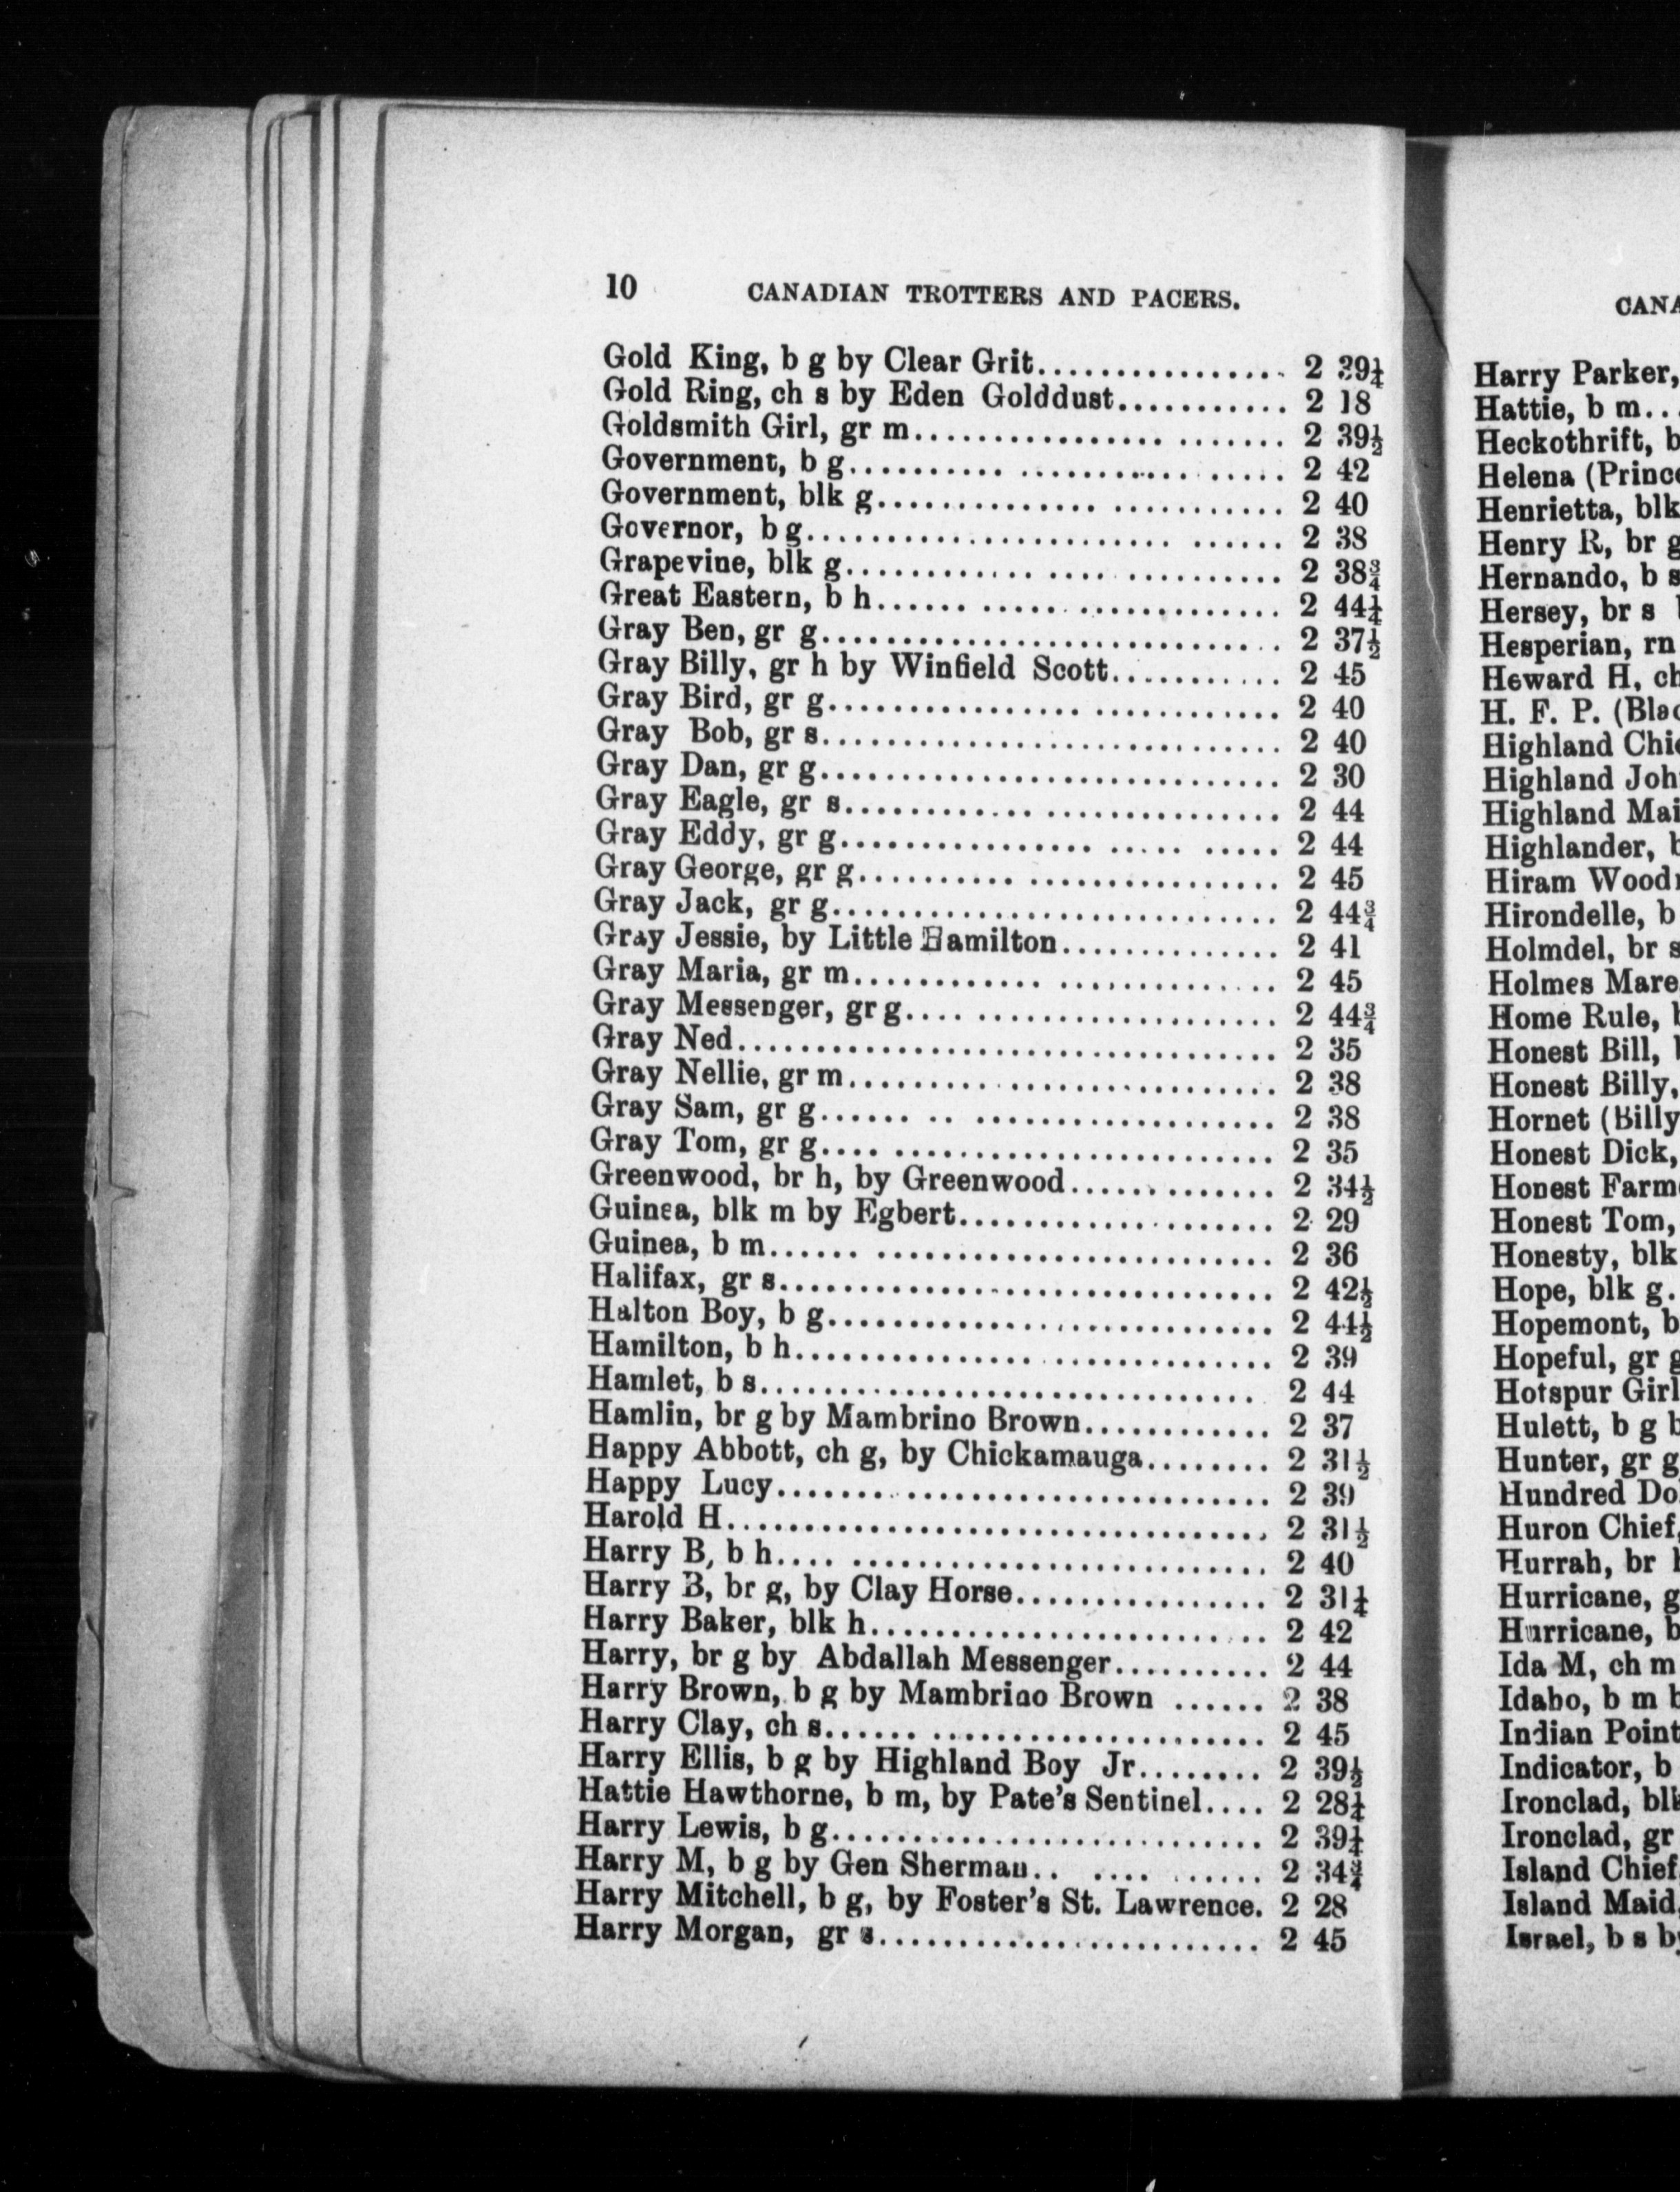 10 CANADIAN TROTTERS AND PACERS.
Gold King, b g by Clear Grit................ 2 39¼
Gold Ring, ch s by Eden Golddust........... 2 18
Goldsmith Girl, gr m....................... 2 39½
Government, b g.......... ................. 2 42
Government, blk g.............. ........... 2 40
Governor, b g....................... ...... 2 38
Grapevine, blk g............ .............. 2 38¾
Great Eastern, b h...... ..... ............. 2 44¼
Gray Ben, gr g............................. 2 37½
Gray Billy, gr h by Winfield Scott........... 2 45
Gray Bird, gr g................ ............ 2 40
Gray Bob, gr s............................. 2 40
Gray Dan, gr g............................. 2 30
Gray Eagle, gr s............ ............... 2 44
Gray Eddy, gr g................ ..... ..... 2 44
Gray George, gr g.......... ................ 2 45
Gray Jack, gr g............................ 2 44¾
Gray Jessie, by Little Hamilton.............. 2 41
Gray Maria, gr m............ .............. 2 45
Gray Messenger, gr g.... ................... 2 44¾
Gray Ned.................................. 2 35
Gray Nellie, gr m.......... ................. 2 38
Gray Sam, gr g...... .. ................... 2 38
Gray Tom, gr g.... ........................ 2 35
Greenwood, br h, by Greenwood............. 2 34½
Guinea, blk m by Egbert.................... 2 29
Guinea, b m...... ......................... 2 36
Halifax, gr s............................... 2 42½
Halton Boy, b g............................ 2 44½
Hamilton, b h............... .............. 2 39
Hamlet, b s............................... 2 44
Hamlin, br g by Mambrino Brown............ 2 37
Happy Abbott, ch g, by Chickamauga........ 2 31½
Happy Lucy............................... 2 39
Harold H.................................. 2 31½
Harry B, b h.... .......................... 2 40
Harry B, br g, by Clay Horse................ 2 31¼
Harry Baker, blk h......................... 2 42
Harry, br g by Abdallah Messenger.......... 2 44
Harry Brown, b g by Mambrino Brown ...... 2 38
Harry Clay, ch s...... ..................... 2 45
Harry Ellis, b g by Highland Boy Jr........ 2 39½
Hattie Hawthorne, b m, by Pate's Sentinel.... 2 28¼
Harry Lewis, b g........................... 2 39¼
Harry M, b g by Gen Sherman.. .... ...... 2 34¾
Harry Mitchell, b g, by Foster's St. Lawrence. 2 28
Harry Morgan, gr s........................ 2 45
Harry Parker,
Hattie, b m...
Heckothrift,
Helena
Henrietta, blk
Henry R, br g
Hernando, b s
Hersey, br s
Hesperian, rn
Heward H,
H. F. P.
Highland
Highland
Highland
Highlander,
Hiram
Hirondelle, b
Holmdel, br s
Holmes Mare
Home Rule,
Honest Bill,
Honest Billy,
Hornet (Billy
Honest Dick,
Honest
Honest Tom,
Honesty, blk
Hope, blk g.
Hopemont, b
Hopeful, gr g
Hotspur Girl
Hulett, b g
Hunter, gr g
Hundred
Huron Chief,
Hurrah, br
Hurricane, g
Hurricane, b
Ida M, ch m
Idaho, b m
Indian Point
Indicator, b
Ironclad,
Ironclad, gr
Island Chief
Island Maid,
Israel, b s